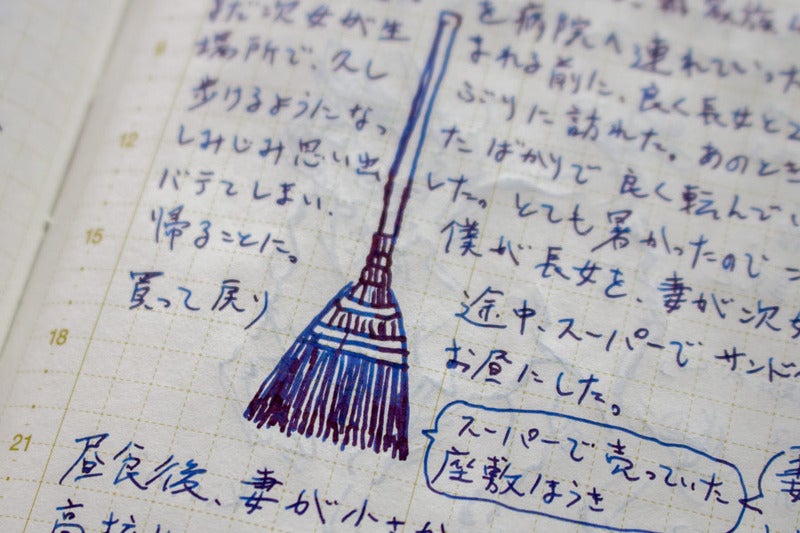 を病院へ連れていった
まだ次女が生まれる前に、良く長女と2
9
場所で、久しぶりに訪れた。あのとき
歩けるようになったばかりで良く転んでい
12
しみじみ思い出した。とても暑かったので
バテてしまい、僕が長女を、妻が次女
15
帰ることに。途中、スーパーでサンド
買って戻りお昼にした。
18
スーパーで売っていた
座敷ほうき
21
昼食後、妻が小さ